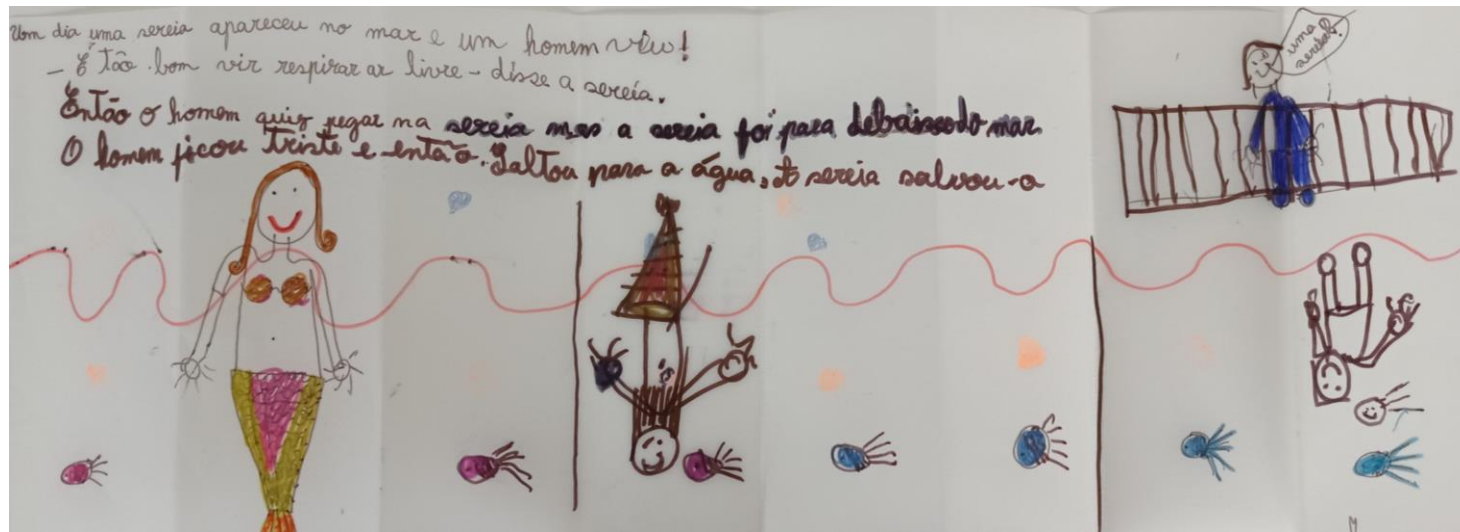 Um dia uma sereia apareceu no mar e um homem viu!
– É tão bom vir respirar ar livre – disse a sereia.
Então o homem quis pegar na sereia mas a sereia foi para debaixo do mar
O homem ficou triste e então. Saltou para a água. A sereia salvou-o
uma
sereia!